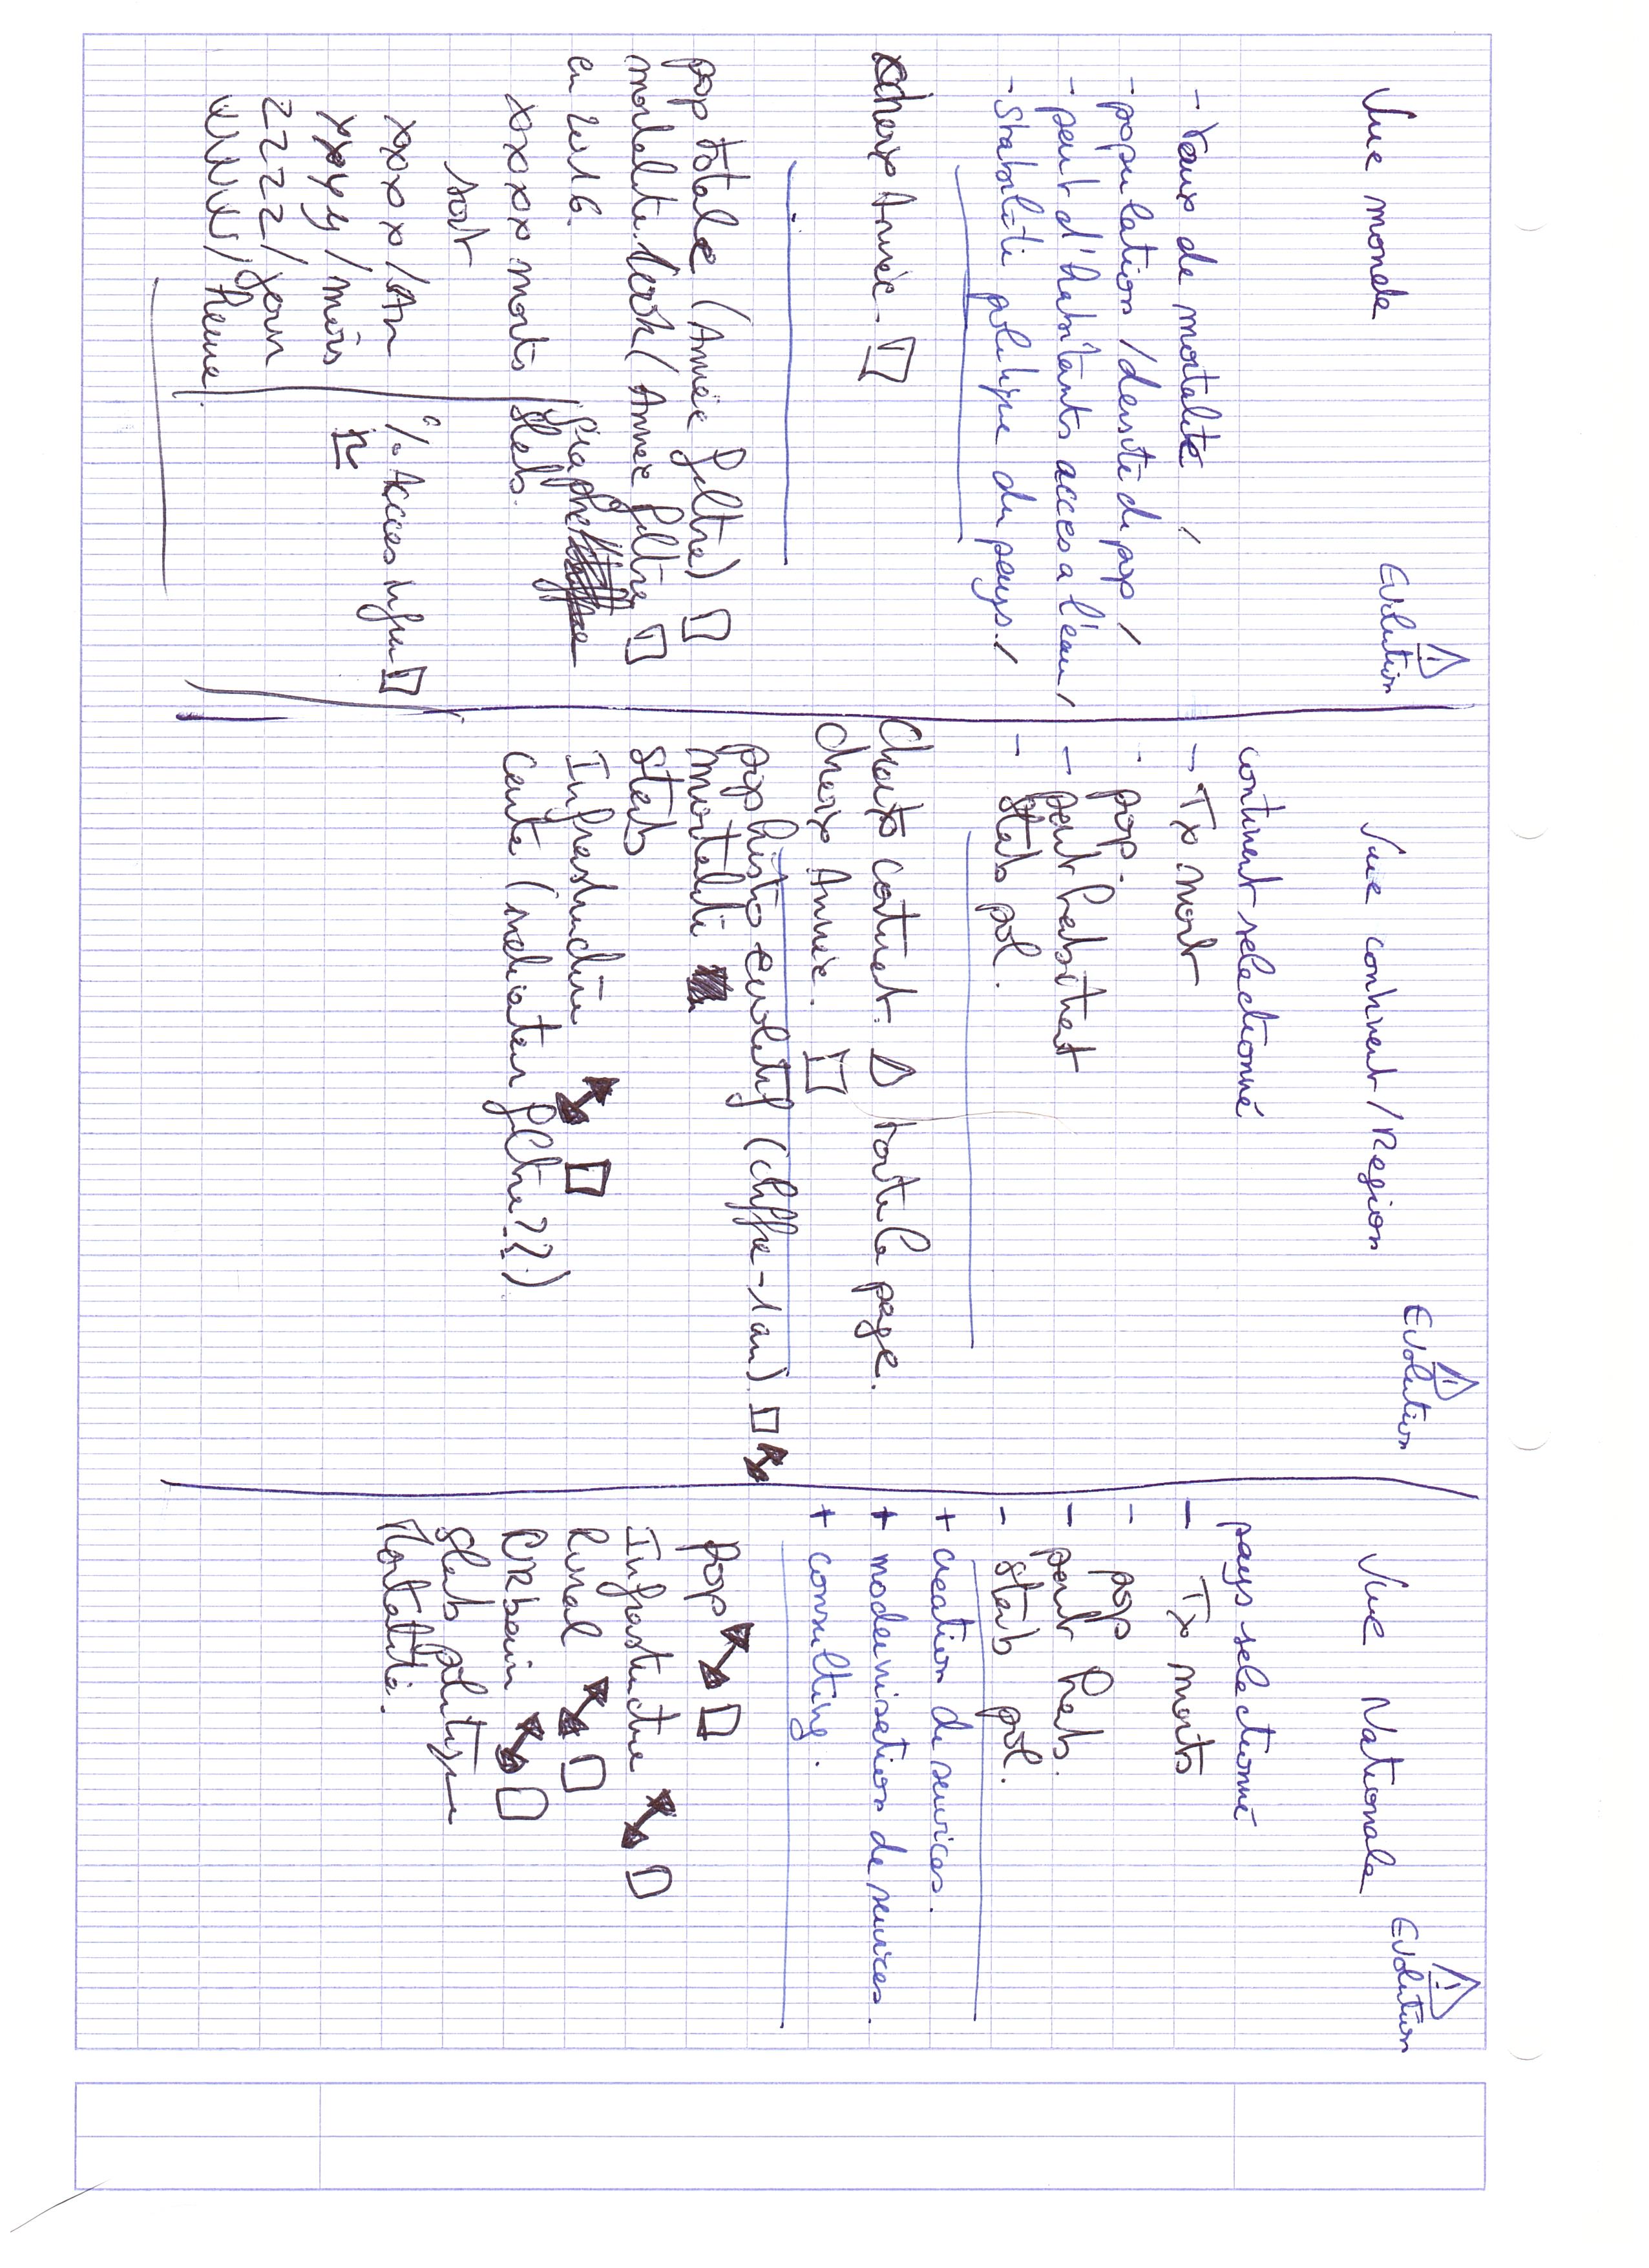 Vue monde
⚠ Evolution
- Taux de mortalité /
- population / densité de pop /
- pour d'habitants acces a l'eau /
- Stabilité politique du pays. /
choix Année. □
pop totale (Année filtre) □
mortalité. / (Année filtre □
en 2016.
xxxxx morts
soit
xxxx / An
yyyy / mois
zzzz / jour
wwww / heure.
Graphe
Stab.
% Acces Infra □
Vue continent / Region
⚠ Evolution
continent selectionné
- Tx mort
- pop.
- pour habitent
- stab pol.
Choix continet. △ toute la page.
choix Année. □
pop histo evolutif (chiffre - 1 an) □
mortalité
stab
Infrastructure □
Carte (indicateur filtre ??)
Vue Nationale
⚠ Evolution
pays selectionné
- Tx morts
- pop
- pour hab.
- stab pol.
+ creation de services.
+ modernisation de services.
+ consulting.
Pop □
Infrastructure □
Rural □
URbain □
Stab politique
Mortalité.